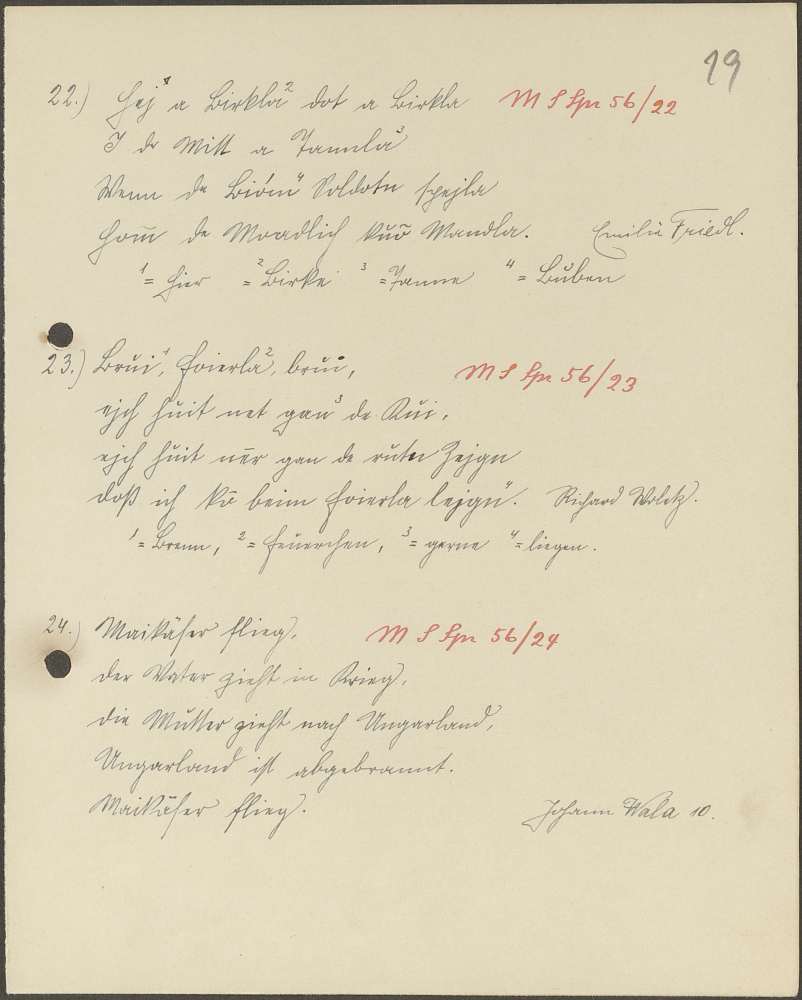 19
22.) Hej¹ a Birkla² dot a Birkla M S Spr 56/22
I dr Mitt a Tannla³
Wenn de Soldotn spejla
Hom de Moadlich Mandla. Emilie Friedl.
¹ = hier ² = Birke ³ = Tanne ⁴ = Buben
23.) Brui¹, Foierla², brui, M S Spr 56/23
ejch huit net gan³ de Kui,
ejch huit ner gan de rutn Zejgn
doß ich kō beim Foierla lejgn⁴. Richard
¹ = Brenn, ² = Feuerchen, ³ = gerne ⁴ = liegen.
24.) Maikäfer flieg, M S Spr 56/24
der Vater zieht in Krieg,
die Mutter zieht nach Ungarland,
Ungarland ist abgebrannt.
Maikäfer flieg. Johann Wala 10.